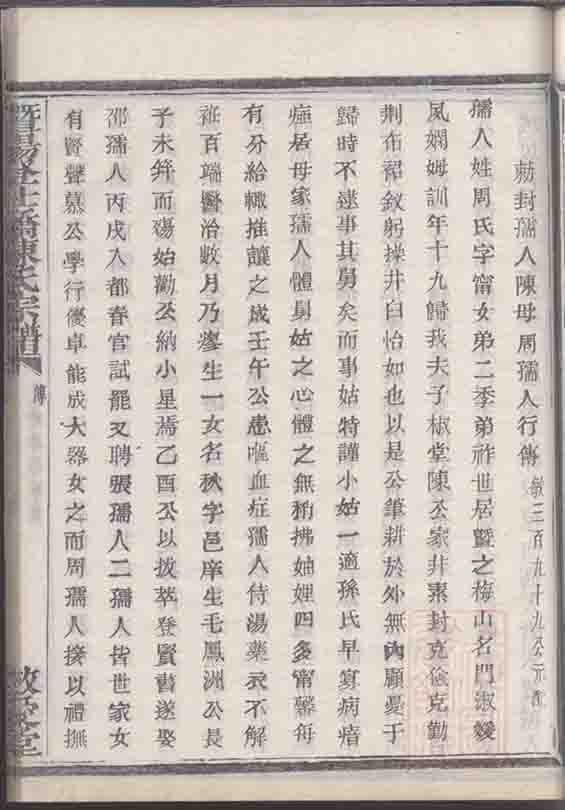 勅封孺人陳母周孺人行傳 敏三百九十九公元配
孺人姓周氏字甯女弟二季弟祚世居暨之梅山名門淑媛
夙嫻姆訓年十九歸我夫子椒堂陳公家非素封克儉克勤
荆布裙釵躬操井臼怡如也以是公筆耕於外無內顧憂于
歸時不逮事其舅矣而事姑特謹小姑一適孫氏早寡病瘖
痖居母家孺人體舅姑之心體之無稍拂妯娌四多甯馨每
有分給輙推讓之成壬午公患嘔血症孺人侍湯藥衣不解
袵百端醫治數月乃瘳生一女名秋字邑庠生毛鳳洲公長
子未笄而殤始勸公納小星焉乙酉公以拔萃登賢書遂娶
邵孺人丙戌入都春官試罷又聘張孺人二孺人皆世家女
有賢聲慕公學行優卓能成大器女之而周孺人接以禮撫
暨陽 橋陳氏宗譜 傳